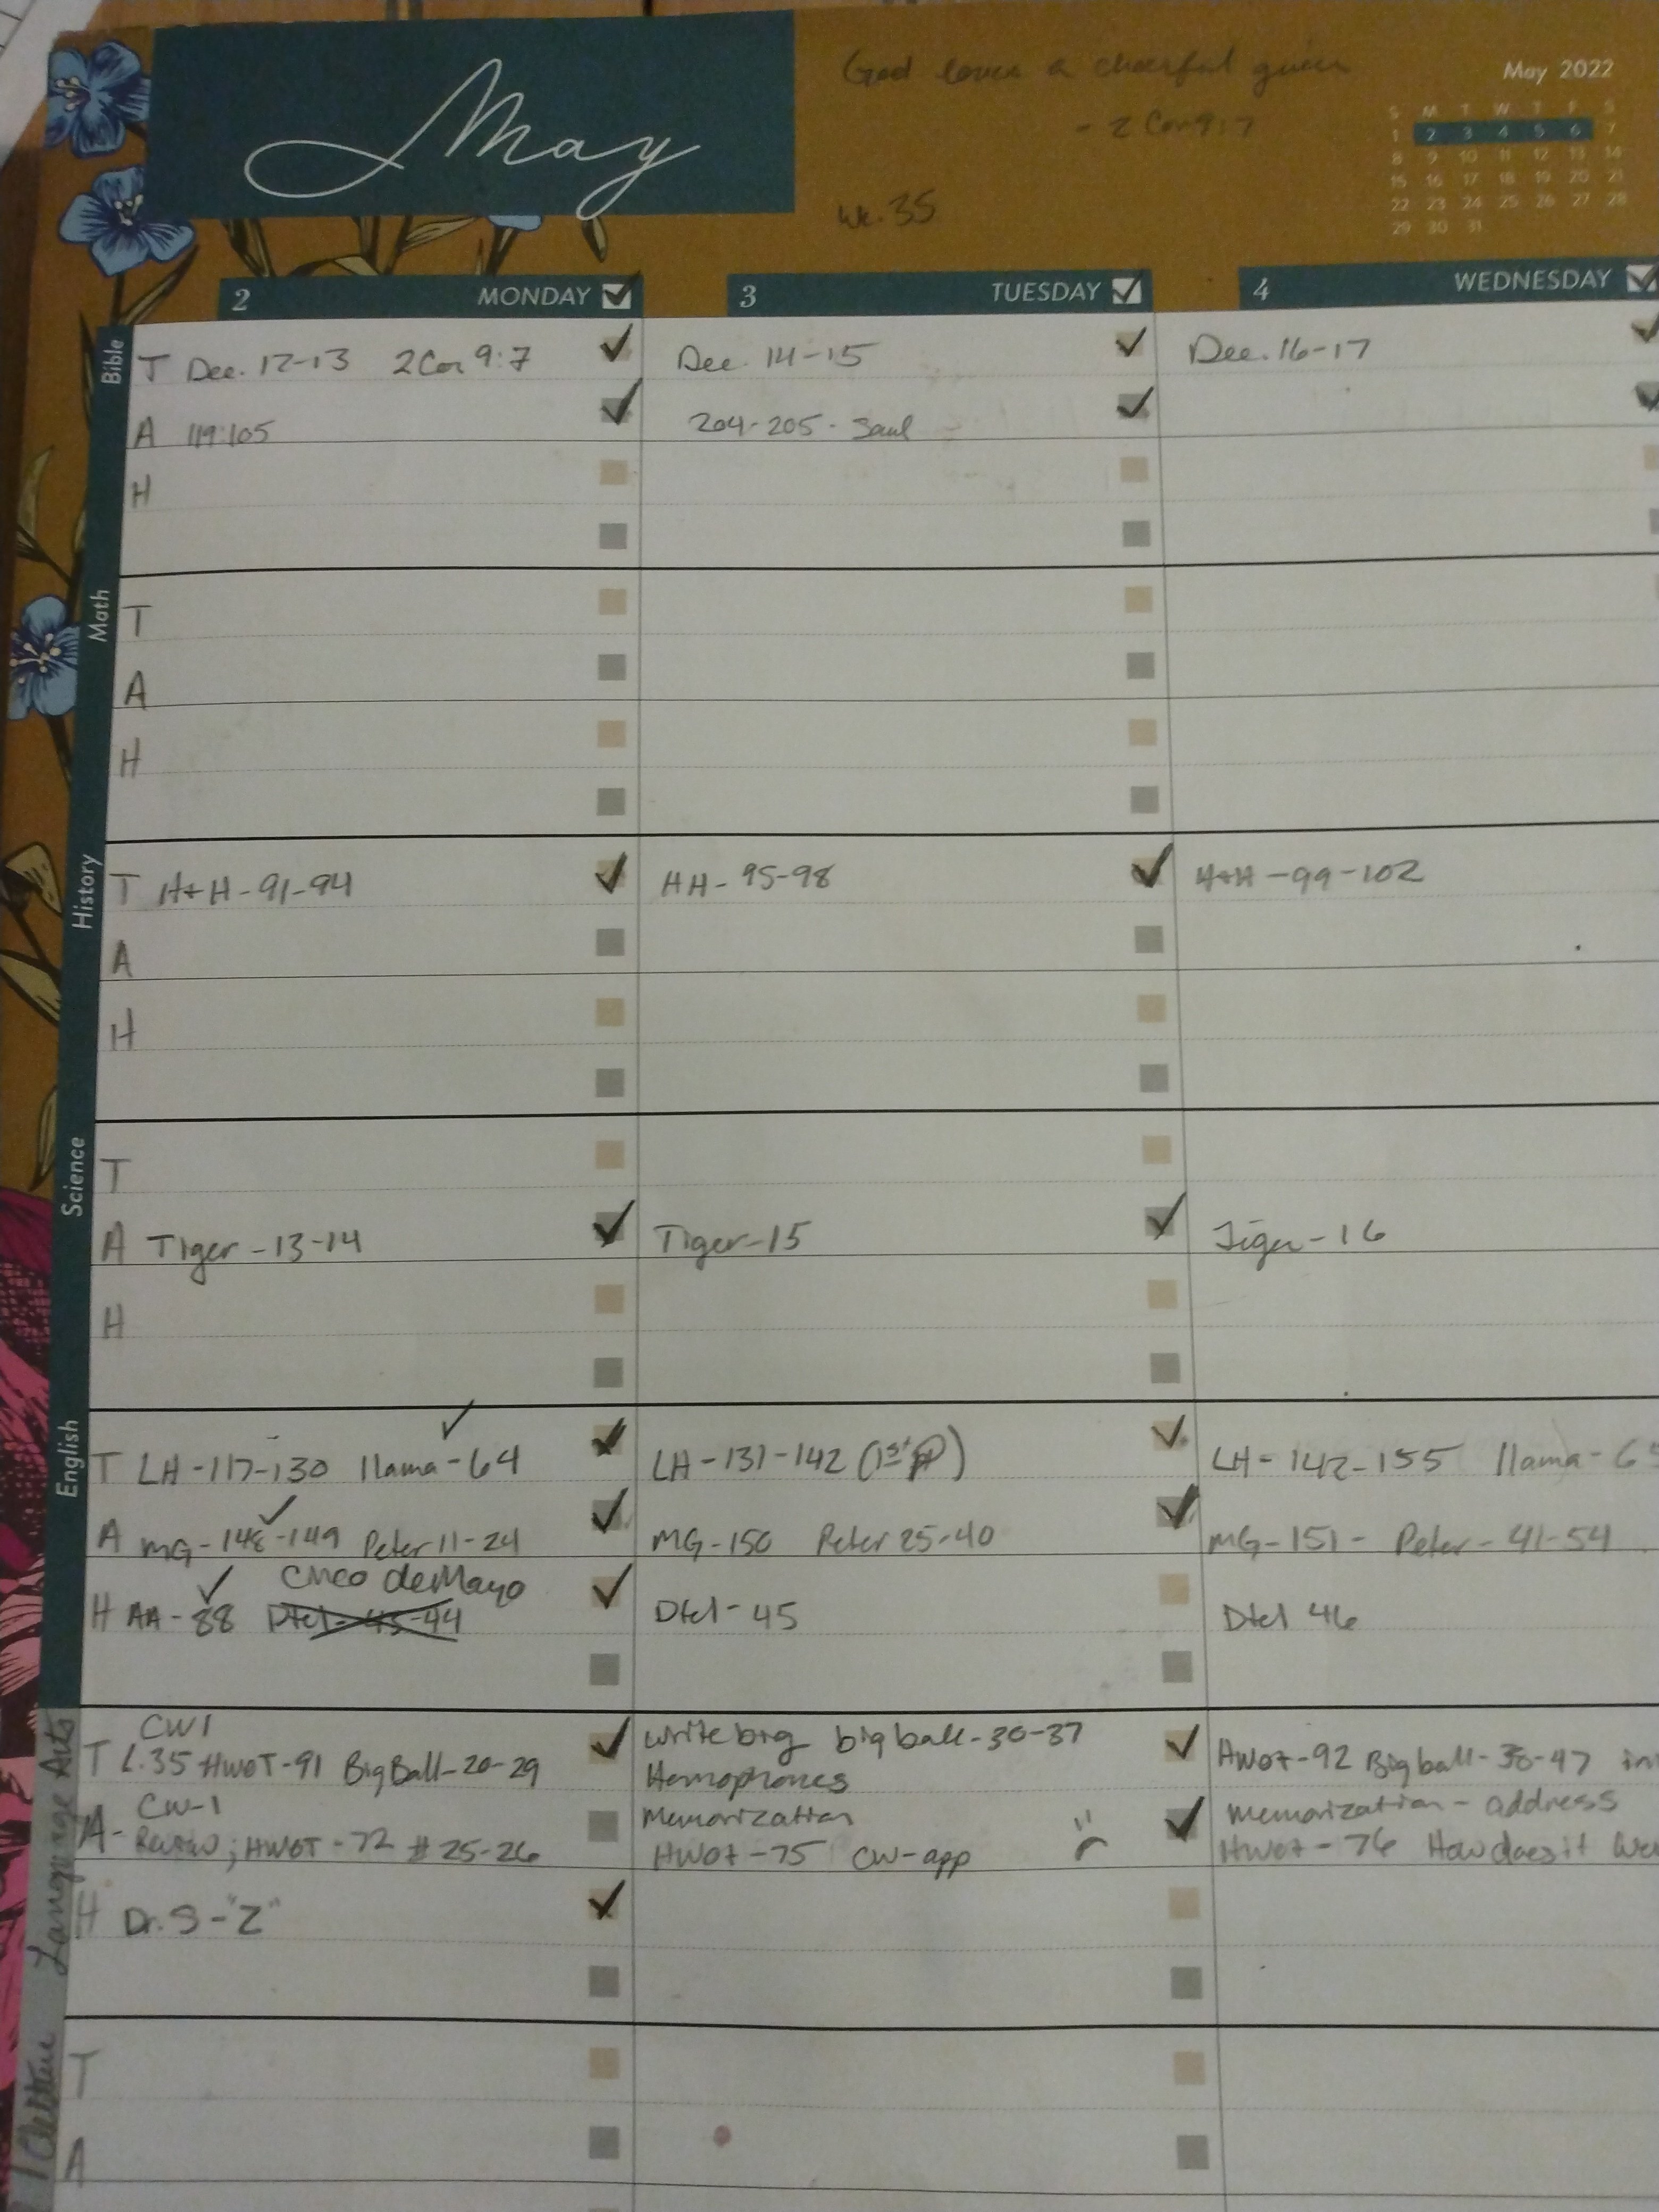 May
God loves a cheerful giver
- 2 Cor 9:7
wk. 35
May 2022
S M T W T F S
1 2 3 4 5 6 7
8 9 10 11 12 13 14
15 16 17 18 19 20 21
22 23 24 25 26 27 28
29 30 31
2 MONDAY 3 TUESDAY 4 WEDNESDAY
Bible
T Dec. 12-13 2 Cor 9:7 Dec. 14-15 Dec. 16-17
A 119:105 204-205- Saul
H
Math
T
A
H
History
T H+H-91-94 HH-95-98 H+H-99-102
A
H
Science
T
A Tiger-13-14 Tiger-15 Tiger-16
H
English
T LH-117-130 llama-64 LH-131-142 (1st P) LH-142-155 llama-65
A MG-148-149 Peter 11-24 MG-150 Peter 25-40 MG-151- Peter-41-54
Cinco de Mayo
H AA-88 Dtel-43-44 Dtel-45 Dtel 46
Language Arts
CW1 write big big ball-30-37
T L.35 HWOT-91 Big Ball-20-29 Homophones HWOT-92 Big ball-38-47
CW-1 Memorization Memorization-address
A- Review; HWOT-72 #25-26 HWOT-75 CW-app HWOT-76 How does it
H Dr. S-"Z"
T
A